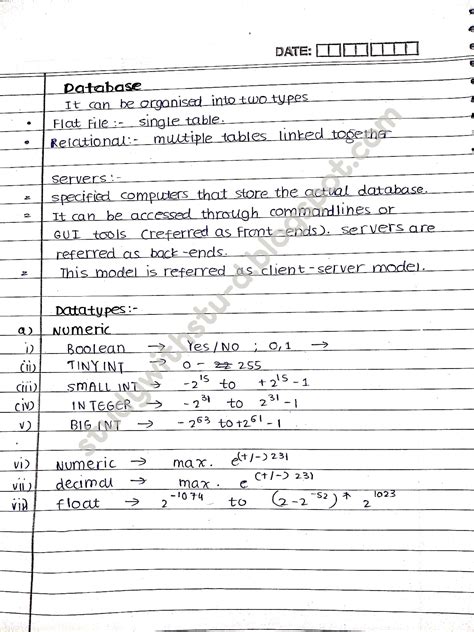 DATE:
Database
It can be organised into two types
• Flat File :- single table.
• Relational :- multiple tables linked together
Servers :-
= specified computers that store the actual database.
= It can be accessed through commandlines or
GUI tools (referred as Front-ends). servers are
referred as back-ends.
= This model is referred as client-server model.
Datatypes:-
a) Numeric
i) Boolean → Yes/No ; 0,1 →
(ii) TINY INT → 0 - 255
(iii) SMALL INT → -2^15 to +2^15-1
(iv) INTEGER → -2^31 to 2^31-1
v) BIG INT → -2^63 to +2^61-1
vi) Numeric → max. e^(+/-)231
vii) decimal → max. e^(+/-)231
viii) float → 2^-1074 to (2-2^-52)* 2^1023
studywithstu-d.blogspot.com